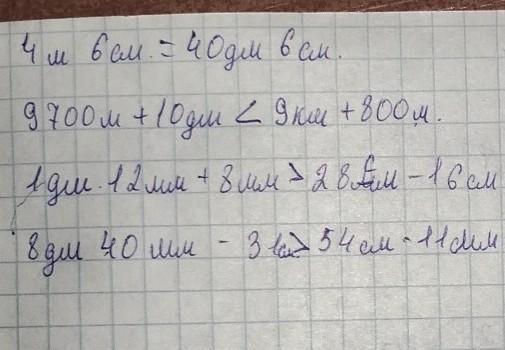 4 м 6 см. = 40дм 6 см.
9700м + 10дм < 9км + 800м.
1дм. 12мм + 8мм > 28 см - 16 см
8дм 40 мм - 31 > 54 см - 11 мм